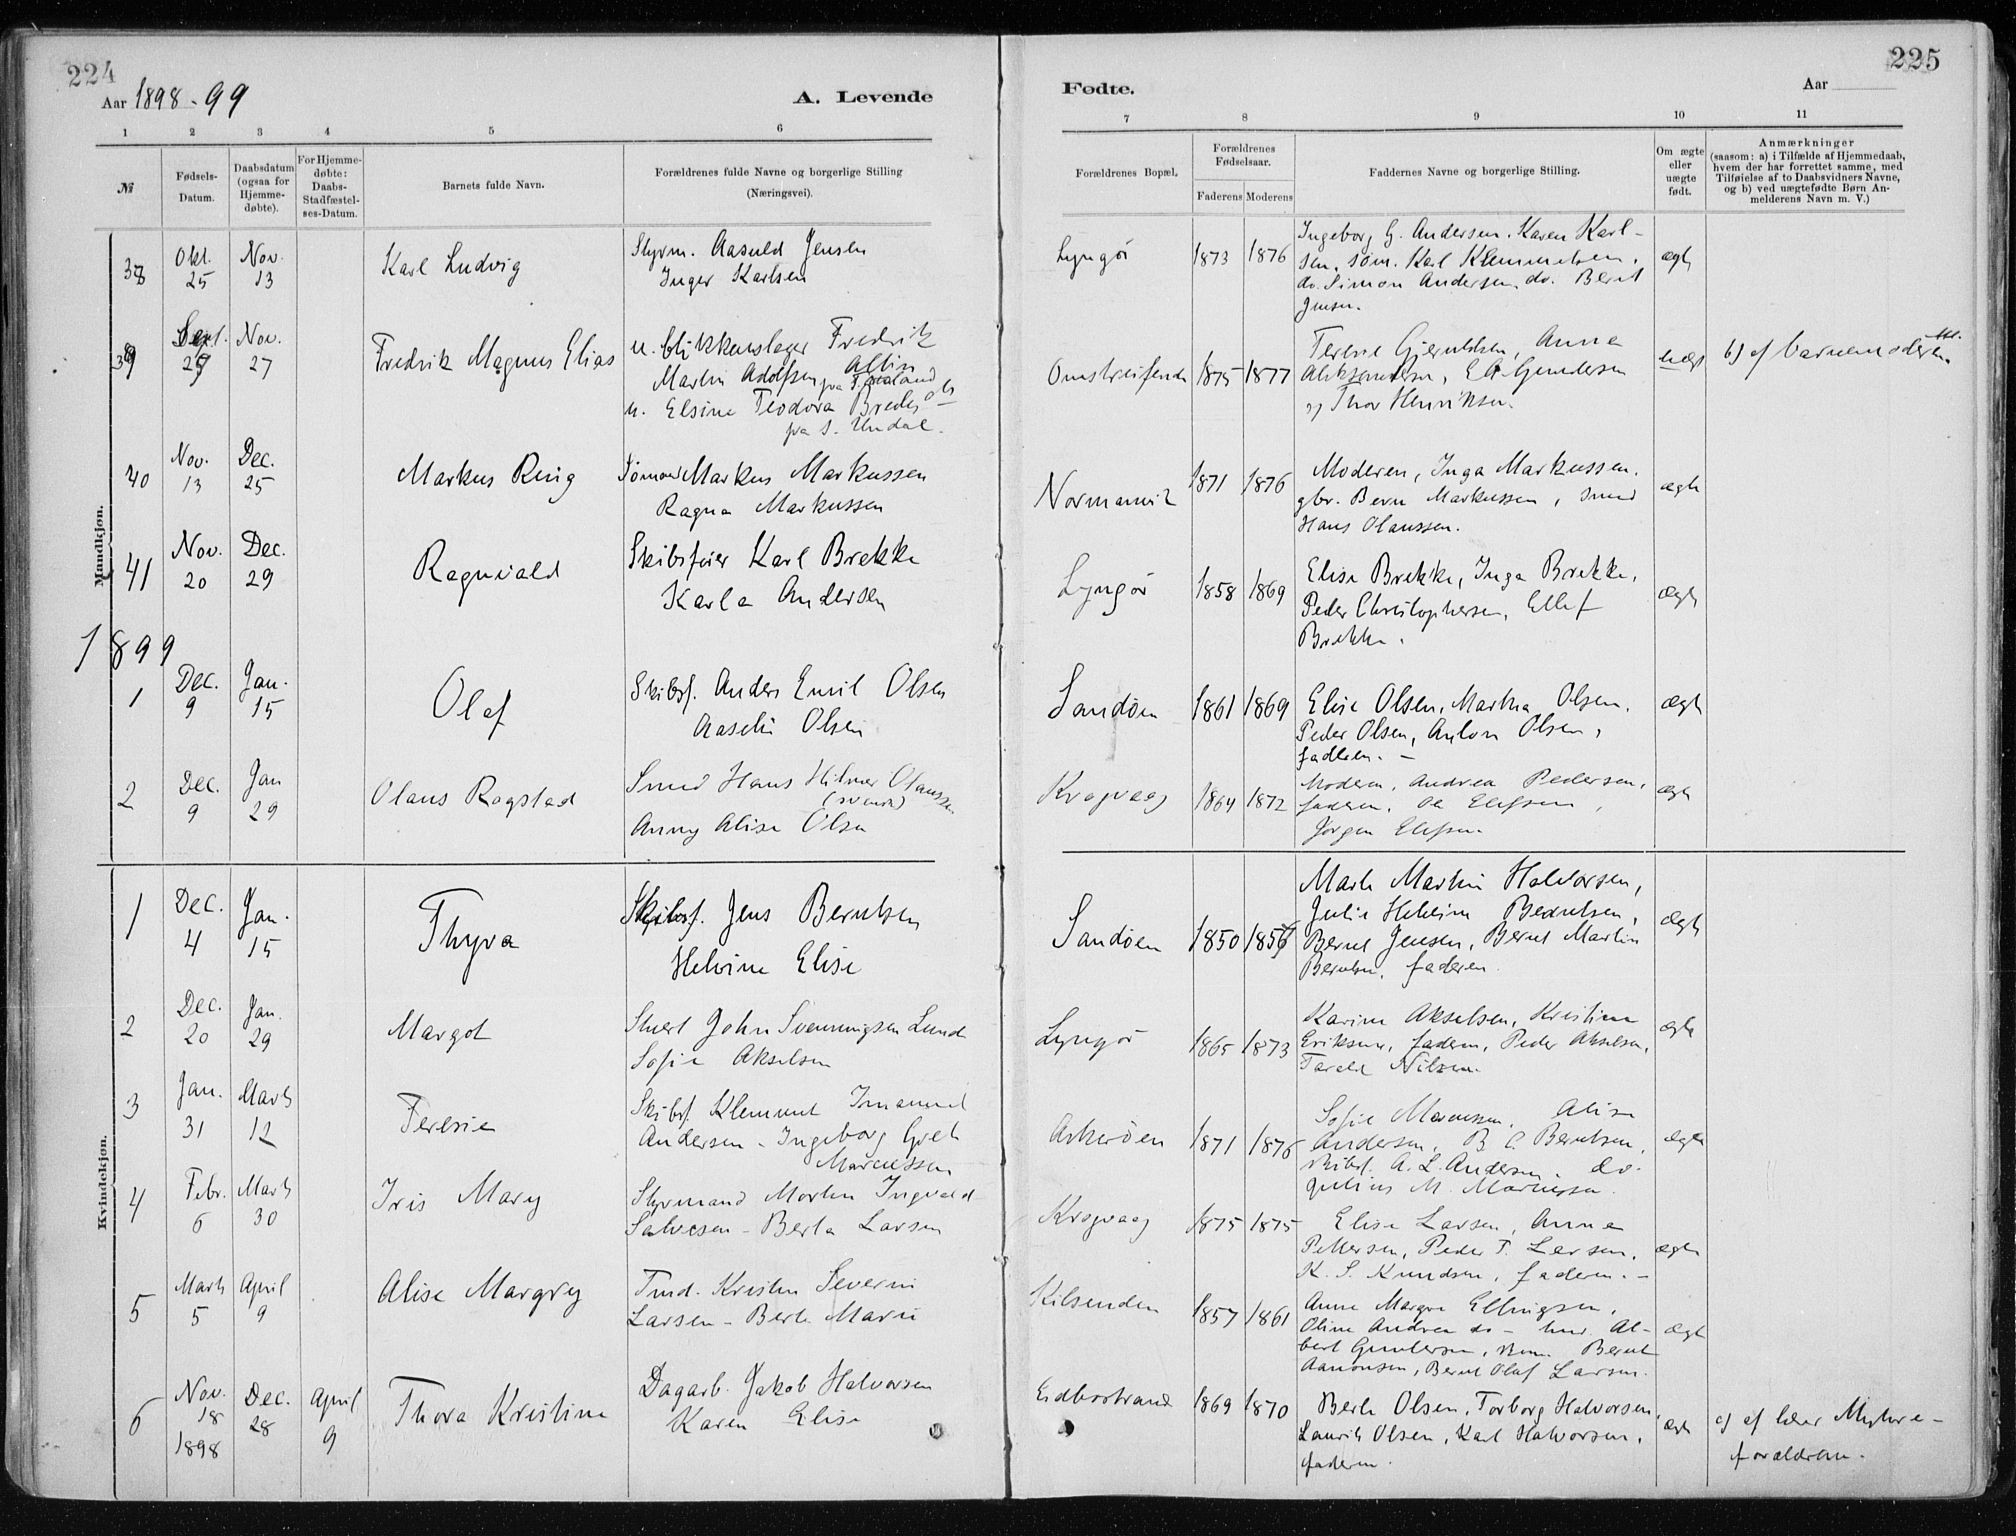 224
Aar 1898-99
A. Levende
1 2 3 4 5 6
№
Fødsels-
Datum.
Daabsdatum
(ogsaa for
Hjemme-
døbte).
For Hjemme-
døbte:
Daabs-
Stadfæstel-
ses-Datum.
Barnets fulde Navn.
Forældrenes fulde Navne og borgerlige Stilling
(Næringsvei).
Mandkjøn.
38 Okt. 25 Nov. 13 Karl Ludvig
Styrm. Aasuld Jensen
Inger Karlsen
39 Sept. Nov. 27 Fredrik Magnus Elias
u. blikkenslager Fredrik
Albin
Martin Adolfsen fra
u. Elsine Teodora
fra S. Undal.
40 Nov. 13 Dec. 25 Markus Ring
Sømand Markus Markussen
Ragna Markussen
41 Nov. 20 Dec. 29 Ragnvald
Skibsfører Karl Brekke
Karla Andersen
1899
1 Dec. 9 Jan. 15 Olaf
Skibsf. Anders Emil Olsen
Olsen
2 Dec. 9 Jan 29 Olaus Rogstad
Smed Hans Hilmer Olaussen
(svensk)
Anny Alise Olsen
Kvindekjøn.
1 Dec. 4 Jan. 15 Thyra
Skibsf. Jens Berntsen
Helvine Elise
2 Dec. 20 Jan. 29 Margot
Stuert John Svenningsen Lund
Sofie Akselsen
3 Jan. 31 Marts 12 Teresie
Skibsf. Klemmet Imanuel
Andersen - Ingeborg Greth
Marcussen
4 Febr. 6 Marts 30 Iris Mary
Styrmand Morten Ingvald
Salvesen - Berta Larsen
5 Marts 5 April 9 Alise Margry
Tmd. Kristen Severin
Larsen - Berte Marie
6 Nov. 18 1898 Dec. 28 April 9 Thora Kristine
Dagarb. Jakob Halvorsen
Karen Elise
225
Fødte.
Aar
7 8 9 10 11
Forældrenes Bopæl.
Forældrenes
Fødselsaar.
Faderens Moderens
Faddernes Navne og borgerlige Stilling.
Om ægte
eller
uægte
født.
Anmærkninger
(saasom: a) i Tilfælde af Hjemmedaab,
hvem der har forrettet samme, med
Tilføielse af to Daabsvidners Navne,
og b) ved uægtefødte Børn An-
melderens Navn m. V.)
Lyngør 1873 1876
Ingeborg G. Andersen. Karen Karl-
sen, søm. Karl Klemmetsen,
do. Simon Andersen, do. Bernt
Jensen.
ægte
Omstreifende 1875 1877
Terese Gjeruldsen, Anna
Aleksandersen, Gundersen
og Thor Henriksen.
uægte
b) af barnemoderen
Normanvik 1871 1876
Moderen, Inga Markussen.
gbr. Bernt Markussen, smed
Hans Olaussen.
ægte
Lyngør 1858 1869
Elise Brekke, Inga Brekke,
Peder Christophersen, Ellef
Brekke.
ægte
Sandøen 1861 1869
Elise Olsen, Martha Olsen.
Peder Olsen, Anton Olsen,
faderen. -
ægte
Krogvaag 1864 1872
Moderen, Andrea Pedersen,
faderen, Ole Elefsen,
Jørgen Elefsen.
ægte
Sandøen 1850
Martin Halvorsen,
Julie Helvine Berntsen,
Bernt Jensen, Bernt Martin
Berntsen, faderen.
ægte
Lyngør 1865 1873
Karine Akselsen, Kristine
Eriksen, faderen, Peder Akselsen,
Tarald Nilsen.
ægte
Askerøen 1871 1876
Sofie Marcussen, Alise
Andersen, B. C. Berntsen,
skibsf. A. L. Andersen. do.
Julius M. Marcussen.
ægte
Krogvaag 1875 1875
Elise Larsen, Anna
Pettersen, Peder T. Larsen,
K. S. Knudsen, faderen. -
ægte
Kilsenden 1857 1861
Anne Margve Ellingsen,
Oline Andrea do - Al-
bert Gundersen, Bernt
Aanonsen, Bernt Olaf Larsen.
ægte
Eidbostrand 1869 1870
Berte Olsen, Torborg Halvorsen,
Laurits Olsen, Karl Halvorsen,
faderen.
ægte
a) af lærer Myhre -
forældrene.